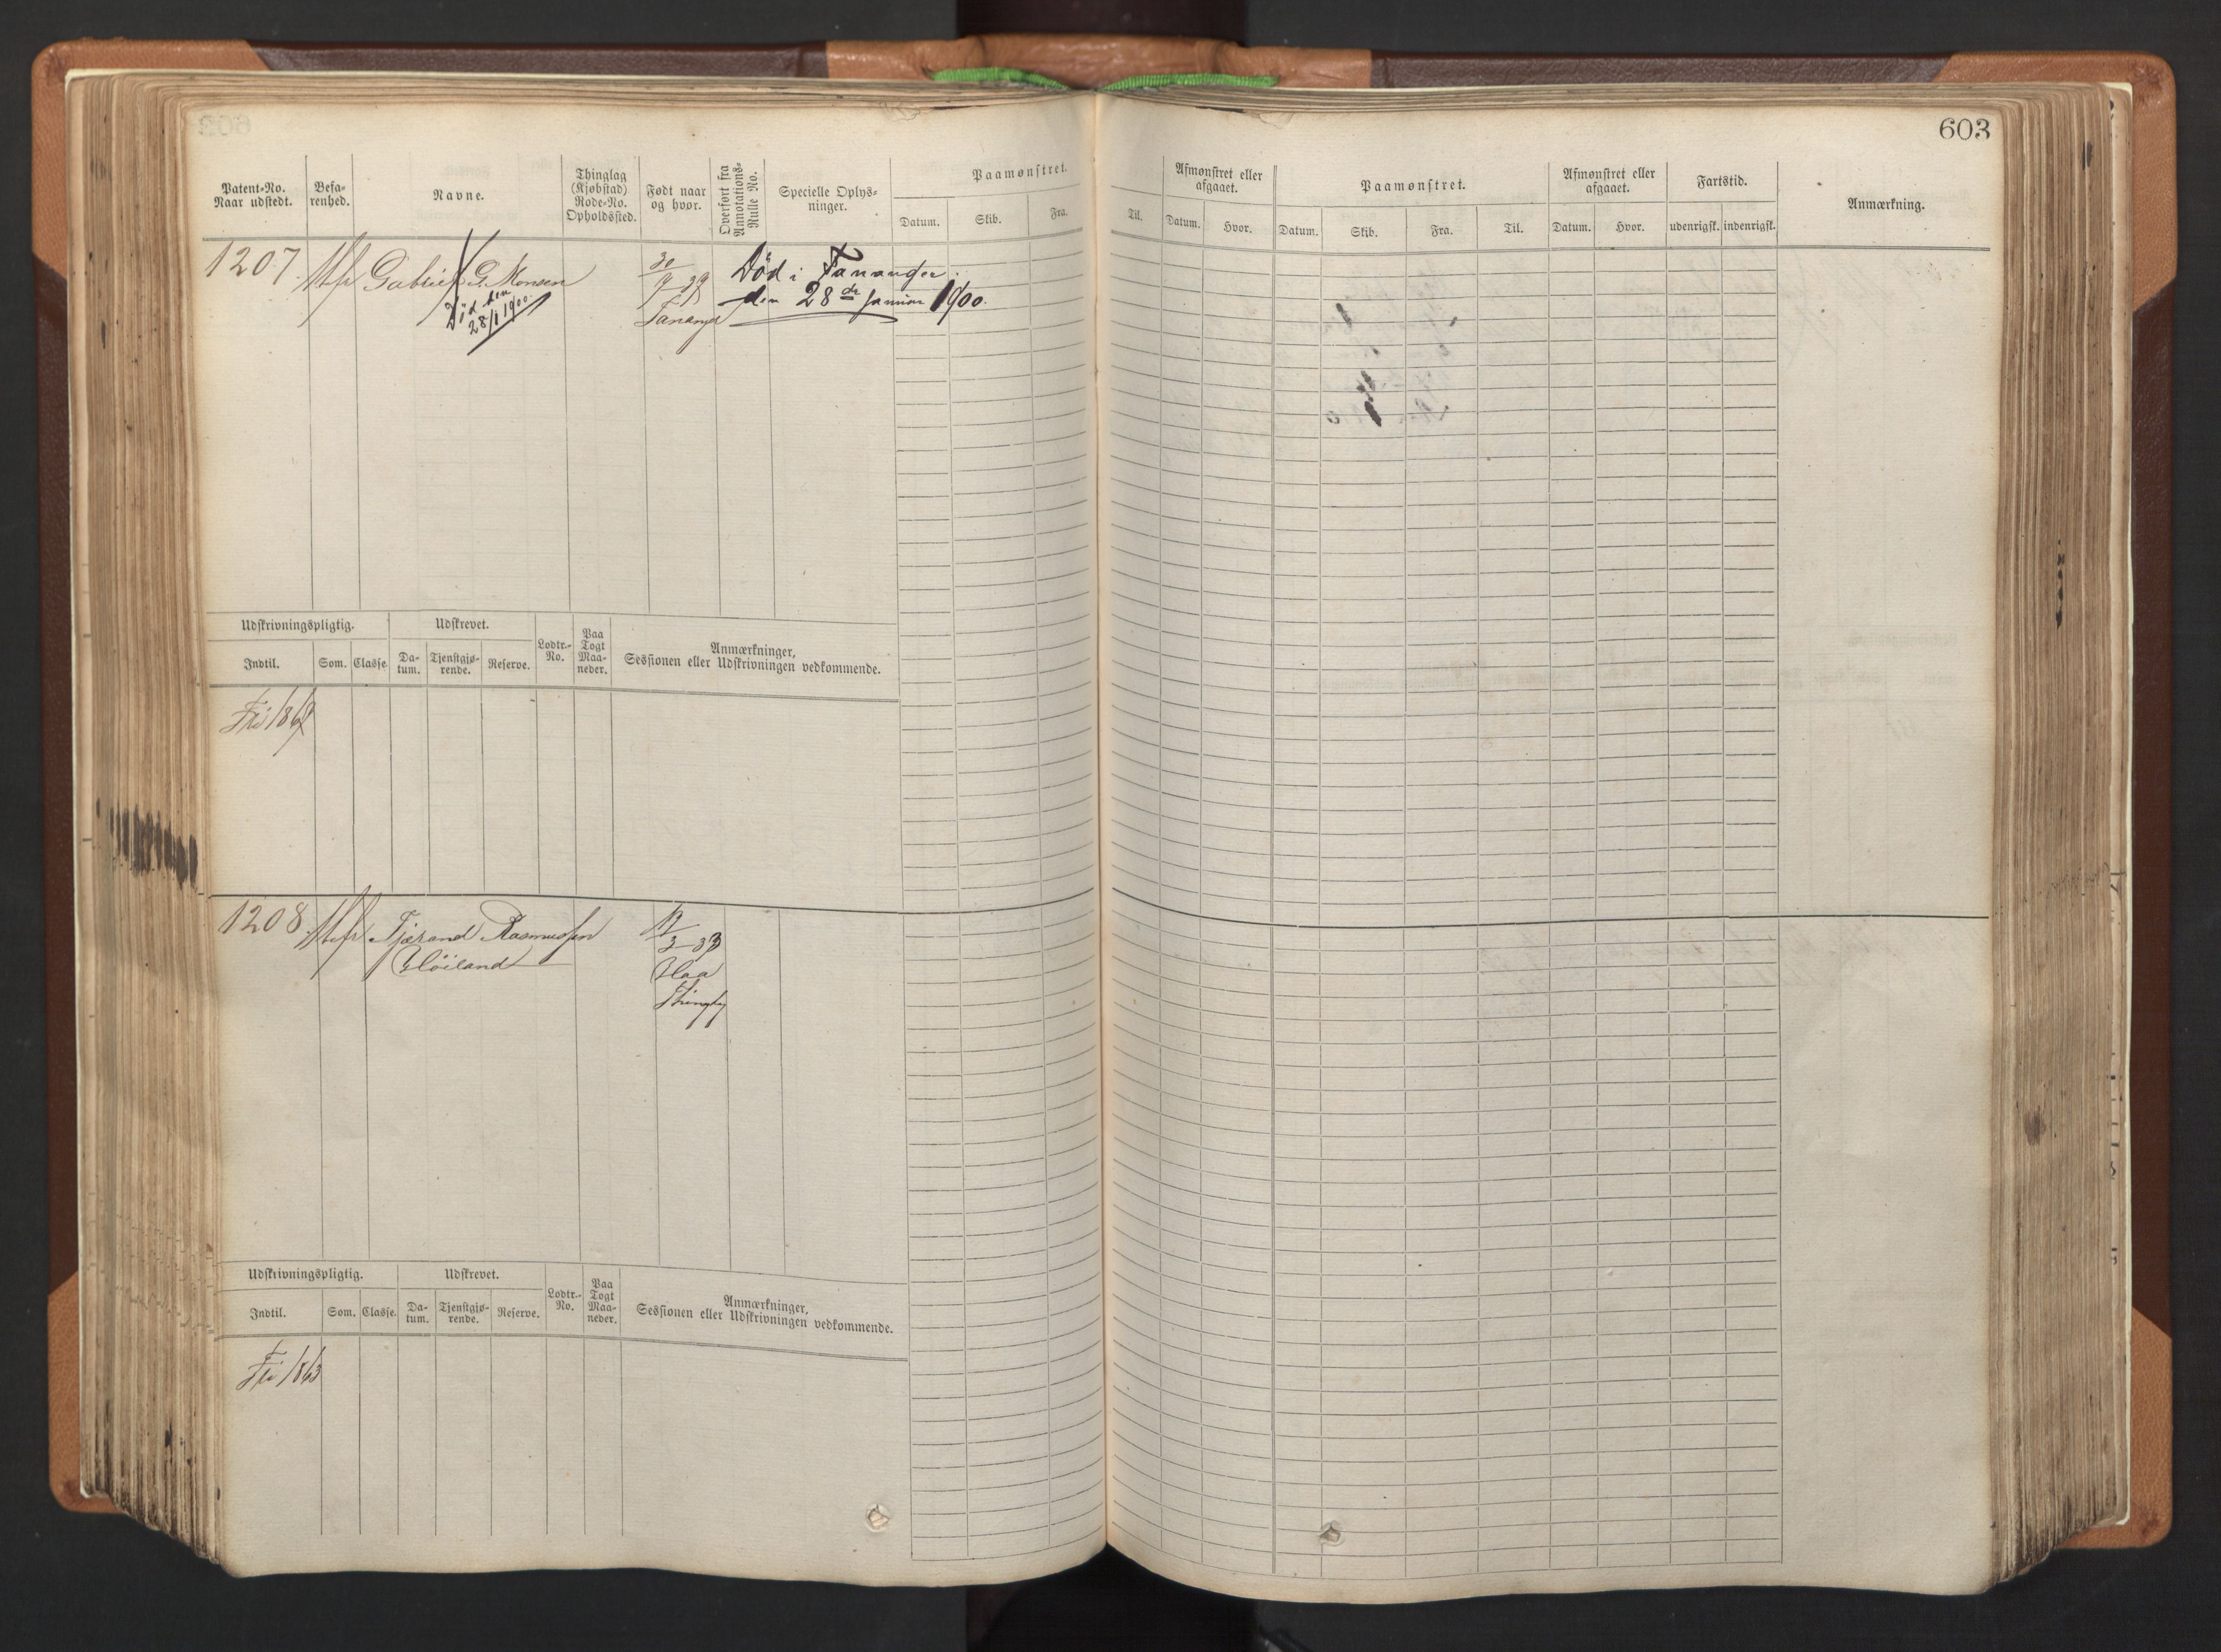 603
Patent-No. Naar udstedt.
Befarenhed.
Navne.
Thinglag (Kjøbstad) Rode-No. Opholdssted.
Født naar og hvor.
Overført fra Annotations-Rulle No.
Specielle Oplysninger.
Paamønstret.
Datum. Skib. Fra. Til.
Afmønstret eller afgaaet.
Datum. Hvor.
Paamønstret.
Datum. Skib. Fra. Til.
Afmønstret eller afgaaet.
Datum. Hvor.
Fartstid.
udenrigsk. indenrigsk.
Anmærkning.
1207. Gabriel G. Monsen
Død den
28/1 1900.
30
9 39
Tananger
Død i Tananger.
den 28de Januar 1900.
Udskrivningspligtig.
Indtil. Som. Classe.
Udskrevet.
Datum. Tjenstgjørende. Reserve.
Lodtr.-No.
Paa Togt Maaneder.
Anmærkninger,
Sessionen eller Udskrivningen vedkommende.
Fri 1869
1208. Tjærand Rasmussen
Høiland
3-33
Haa
Thinglag
Udskrivningspligtig.
Indtil. Som. Classe.
Udskrevet.
Datum. Tjenstgjørende. Reserve.
Lodtr.-No.
Paa Togt Maaneder.
Anmærkninger,
Sessionen eller Udskrivningen vedkommende.
Fri 1863